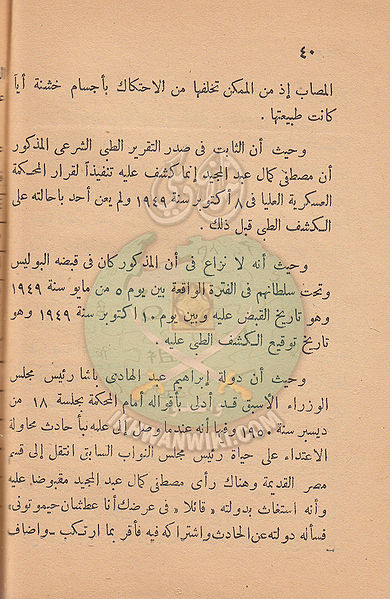 ٤٠
المصاب إذ من الممكن تخلفها من الاحتكاك بأجسام خشنة أياً
كانت طبيعتها .
وحيث أن الثابت فى صدر التقرير الطبى الشرعى المذكور
أن مصطفى كمال عبد المجيد إنما كشف عليه تنفيذاً لقرار المحكمة
العسكرية العليا فى ٨ أكتوبر سنة ١٩٤٩ ولم يعن أحد باحالته على
الكشف الطبى قبل ذلك .
وحيث أنه لا نزاع فى أن المذكور كان فى قبضه البوليس
وتحت سلطانهم فى الفترة الواقعة بين يوم ٥ من مايو سنة ١٩٤٩
وهو تاريخ القبض عليه وبين يوم ١٠ اكتوبر سنة ١٩٤٩ وهو
تاريخ توقيع الكشف الطبى عليه .
وحيث أن دولة إبراهيم عبد الهادى باشا رئيس مجلس
الوزراء الأسبق قد أدلى بأقواله أمام المحكمة بجلسة ١٨ من
ديسبر سنة ١٩٥٠ وفيها أنه عندما وصل إلى علمه نبأ حادث محاولة
الاعتداء على حياة رئيس مجلس النواب السابق انتقل إلى قسم
مصر القديمة وهناك رأى مصطفى كمال عبد المجيد مقبوضا عليه
وأنه استغاث بدولته « قائلا » فى عرضك أنا عطشان حيموتونى،
فسأله دولته عن الحادث واشتراكه فيه فأقر بما ارتكب ـ واضاف
IKHWANWIKI.COM